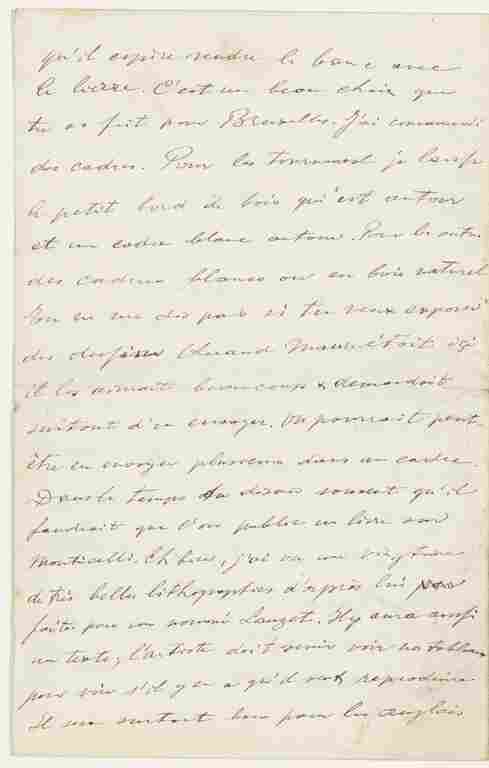 qu'il espère rendre le banc avec
le lierre. C'est un beau choix que
tu as fait pour Bruxelles. J'ai commandé
des cadres. Pour les tournesol je laisse
le petit bord de bois qui est autour
et un cadre blanc autour. Pour les autres
des cadres blancs ou en bois naturel
Tu ne me dis pas si tu veux exposer
des dessins. Quand Maus était ici
il les aimait beaucoup & demandait
surtout d'en envoyer. On pourrait peut-
être en envoyer plusieurs dans un cadre.
Dans le temps tu disais souvent qu'il
faudrait que l'on publie un livre sur
Monticelli. Eh bien, j'ai vu une vingtaine
de très belles lithographies d'après lui
faites par un nommé Lauzet. Il y aura aussi
un texte, l'artiste doit venir voir nos tableaux
pour voir s'il y en a qu'il veut reproduire
Il sera surtout bon pour les anglais